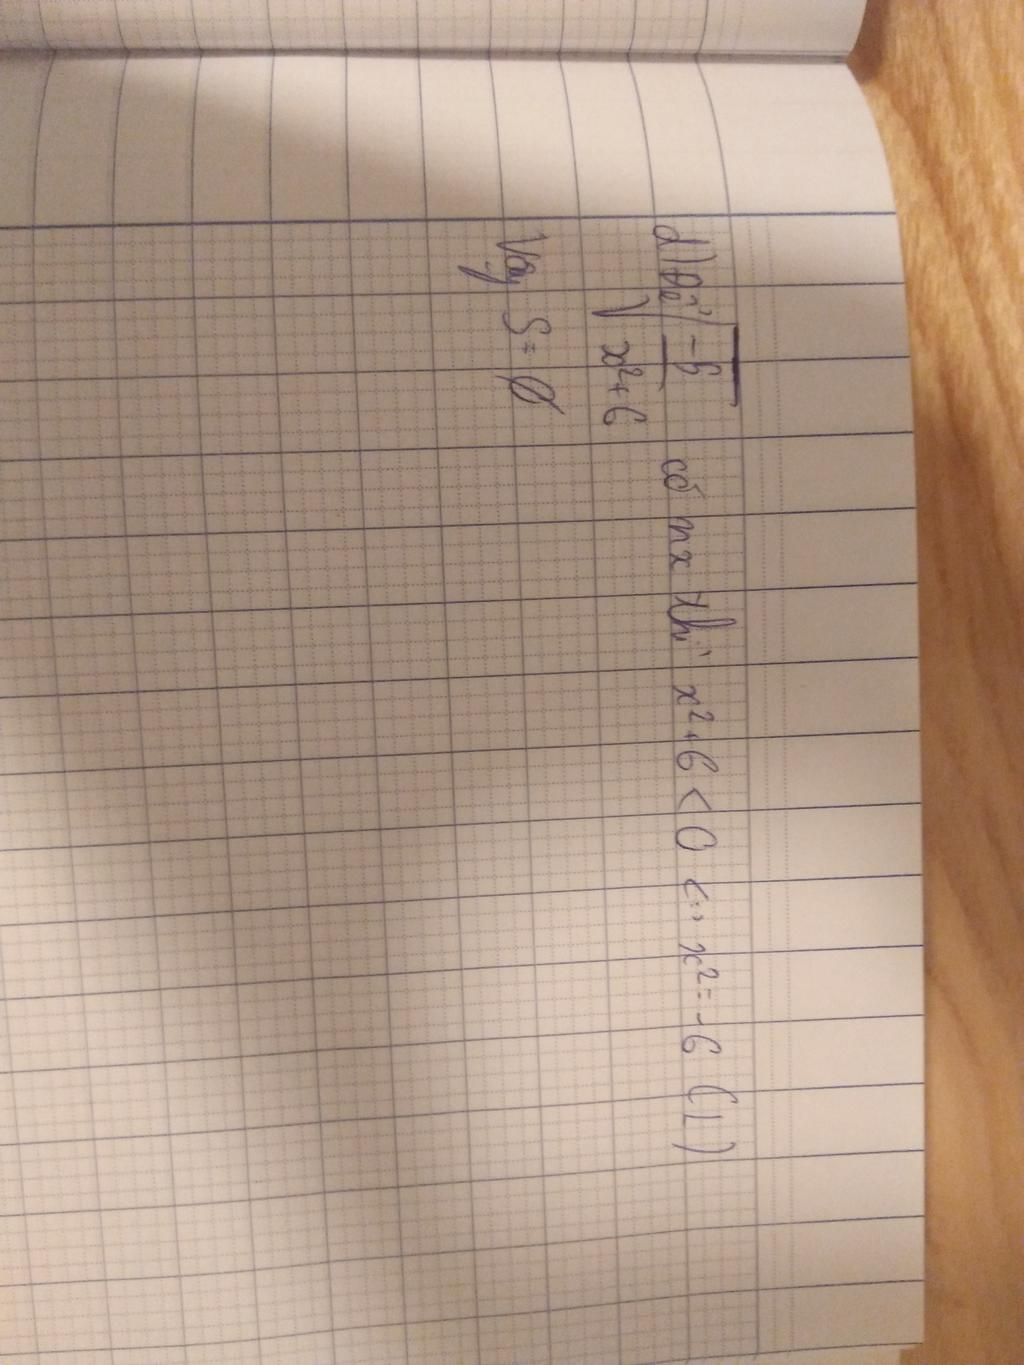 d) Để √(-5/x²+6) có nx thì x²+6 < 0 <=> x² = -6 (L)
Vậy S = ∅